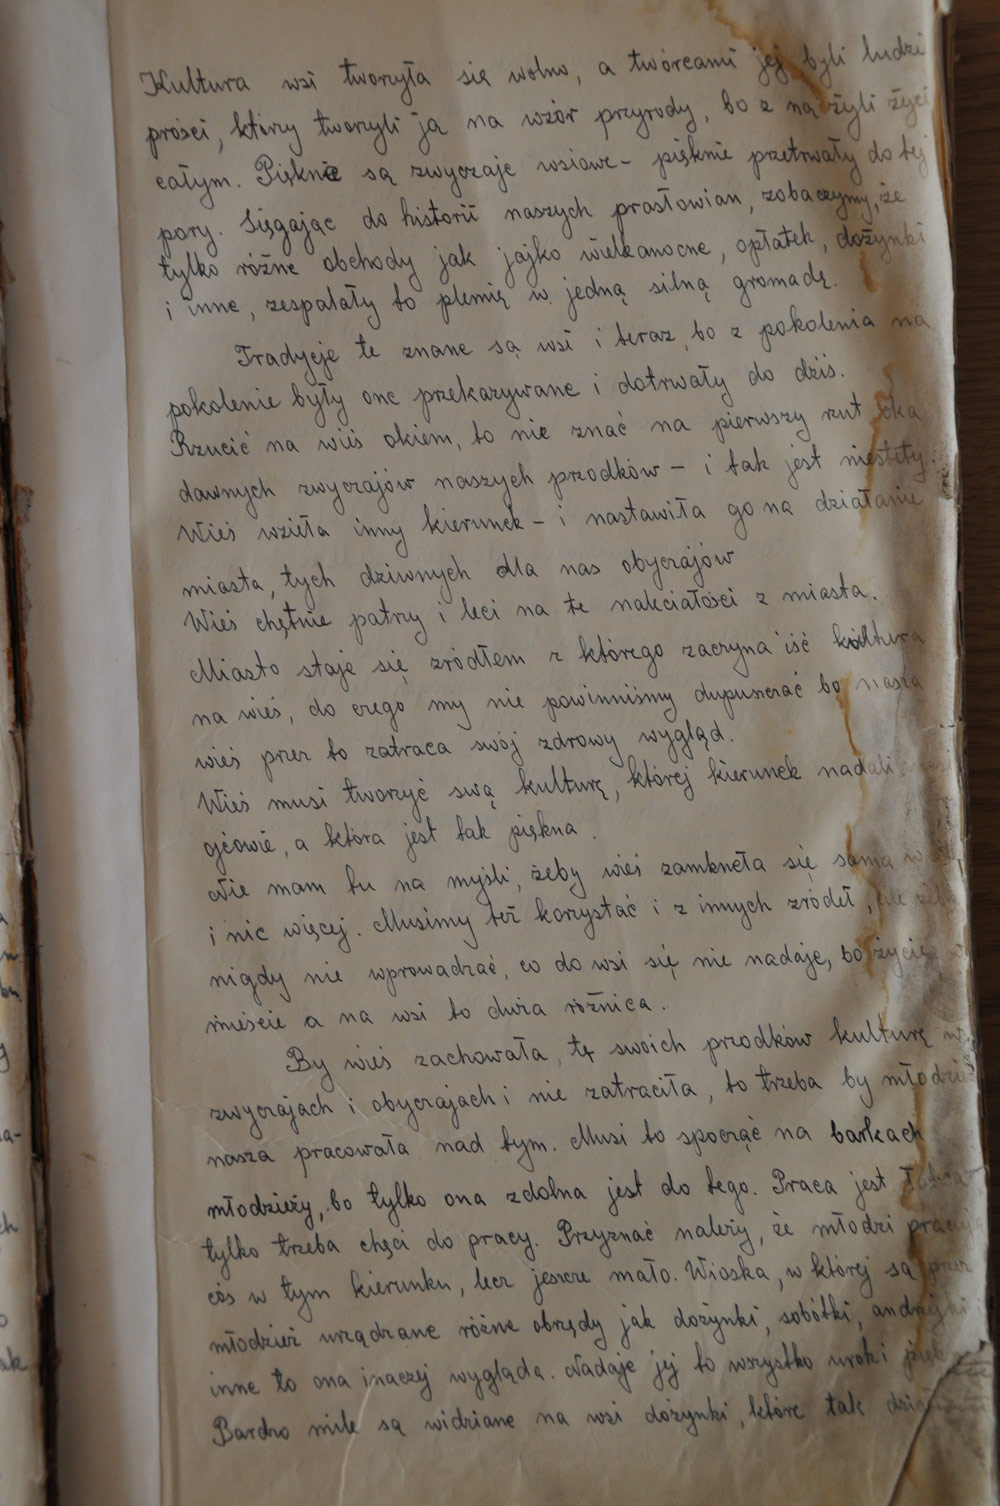 Kultura wsi tworzyła się wolno, a twórcami jej byli ludzi
prości, którzy tworzyli ją na wzór przyrody, bo z nią żyli życi
całym. Pięknie są zwyczaje wsiowe - pięknie przetrwały do tej
pory. Sięgając do historii naszych prasłowian, zobaczymy, że
tylko różne obchody jak jajko wielkanocne, opłatek, dożynki
i inne, zespalały to plemię w jedną silną gromadę.
Tradycje te znane są wsi i teraz, bo z pokolenia na
pokolenie były one przekazywane i dotrwały do dziś.
Rzucić na wieś okiem, to nie znać na pierwszy rzut oka
dawnych zwyczajów naszych przodków - i tak jest niestety.
Wieś wzieła inny kierunek - i nastawiła go na działanie
miasta, tych dziwnych dla nas obyczajów
Wieś chętnie patrzy i leci na te naleciałości z miasta.
Miasto staje się zródłem z którego zaczyna iść kultura
na wieś, do czego my nie powinniśmy dupuszczać bo nasza
wieś przez to zatraca swój zdrowy wygląd.
Wieś musi tworzyć swą kulturę, której kierunek nadali
ojcowie, a która jest tak piękna.
Nie mam tu na myśli, żeby wieś zamkneła się sama w
i nic więcej. Musimy też korzystać i z innych zródeł, ale
nigdy nie wprowadzać, co do wsi się nie nadaje, bo życie
mieście a na wsi to dwia róžnica.
By wieś zachowała, tę swoich przodków kulturę w
zwyczajach i obyczajach i nie zatraciła, to trzeba by młodzież
nasza pracowała nad tym. Musi to spocząć na barkach
młodzieży, bo tylko ona zdolna jest do tego. Praca jest
tylko trzeba chęci do pracy. Przyznać należy, że młodzi
coś w tym kierunku, lecz jeszcze mało. Wioska, w której są przez
młodzież urządzane różne obrzędy jak dożynki, sobótki, andrzejki
inne to ona inaczej wygląda. Nadaje jej to wszystko uroki
Bardzo mile są widziane na wsi dożynki, które tak